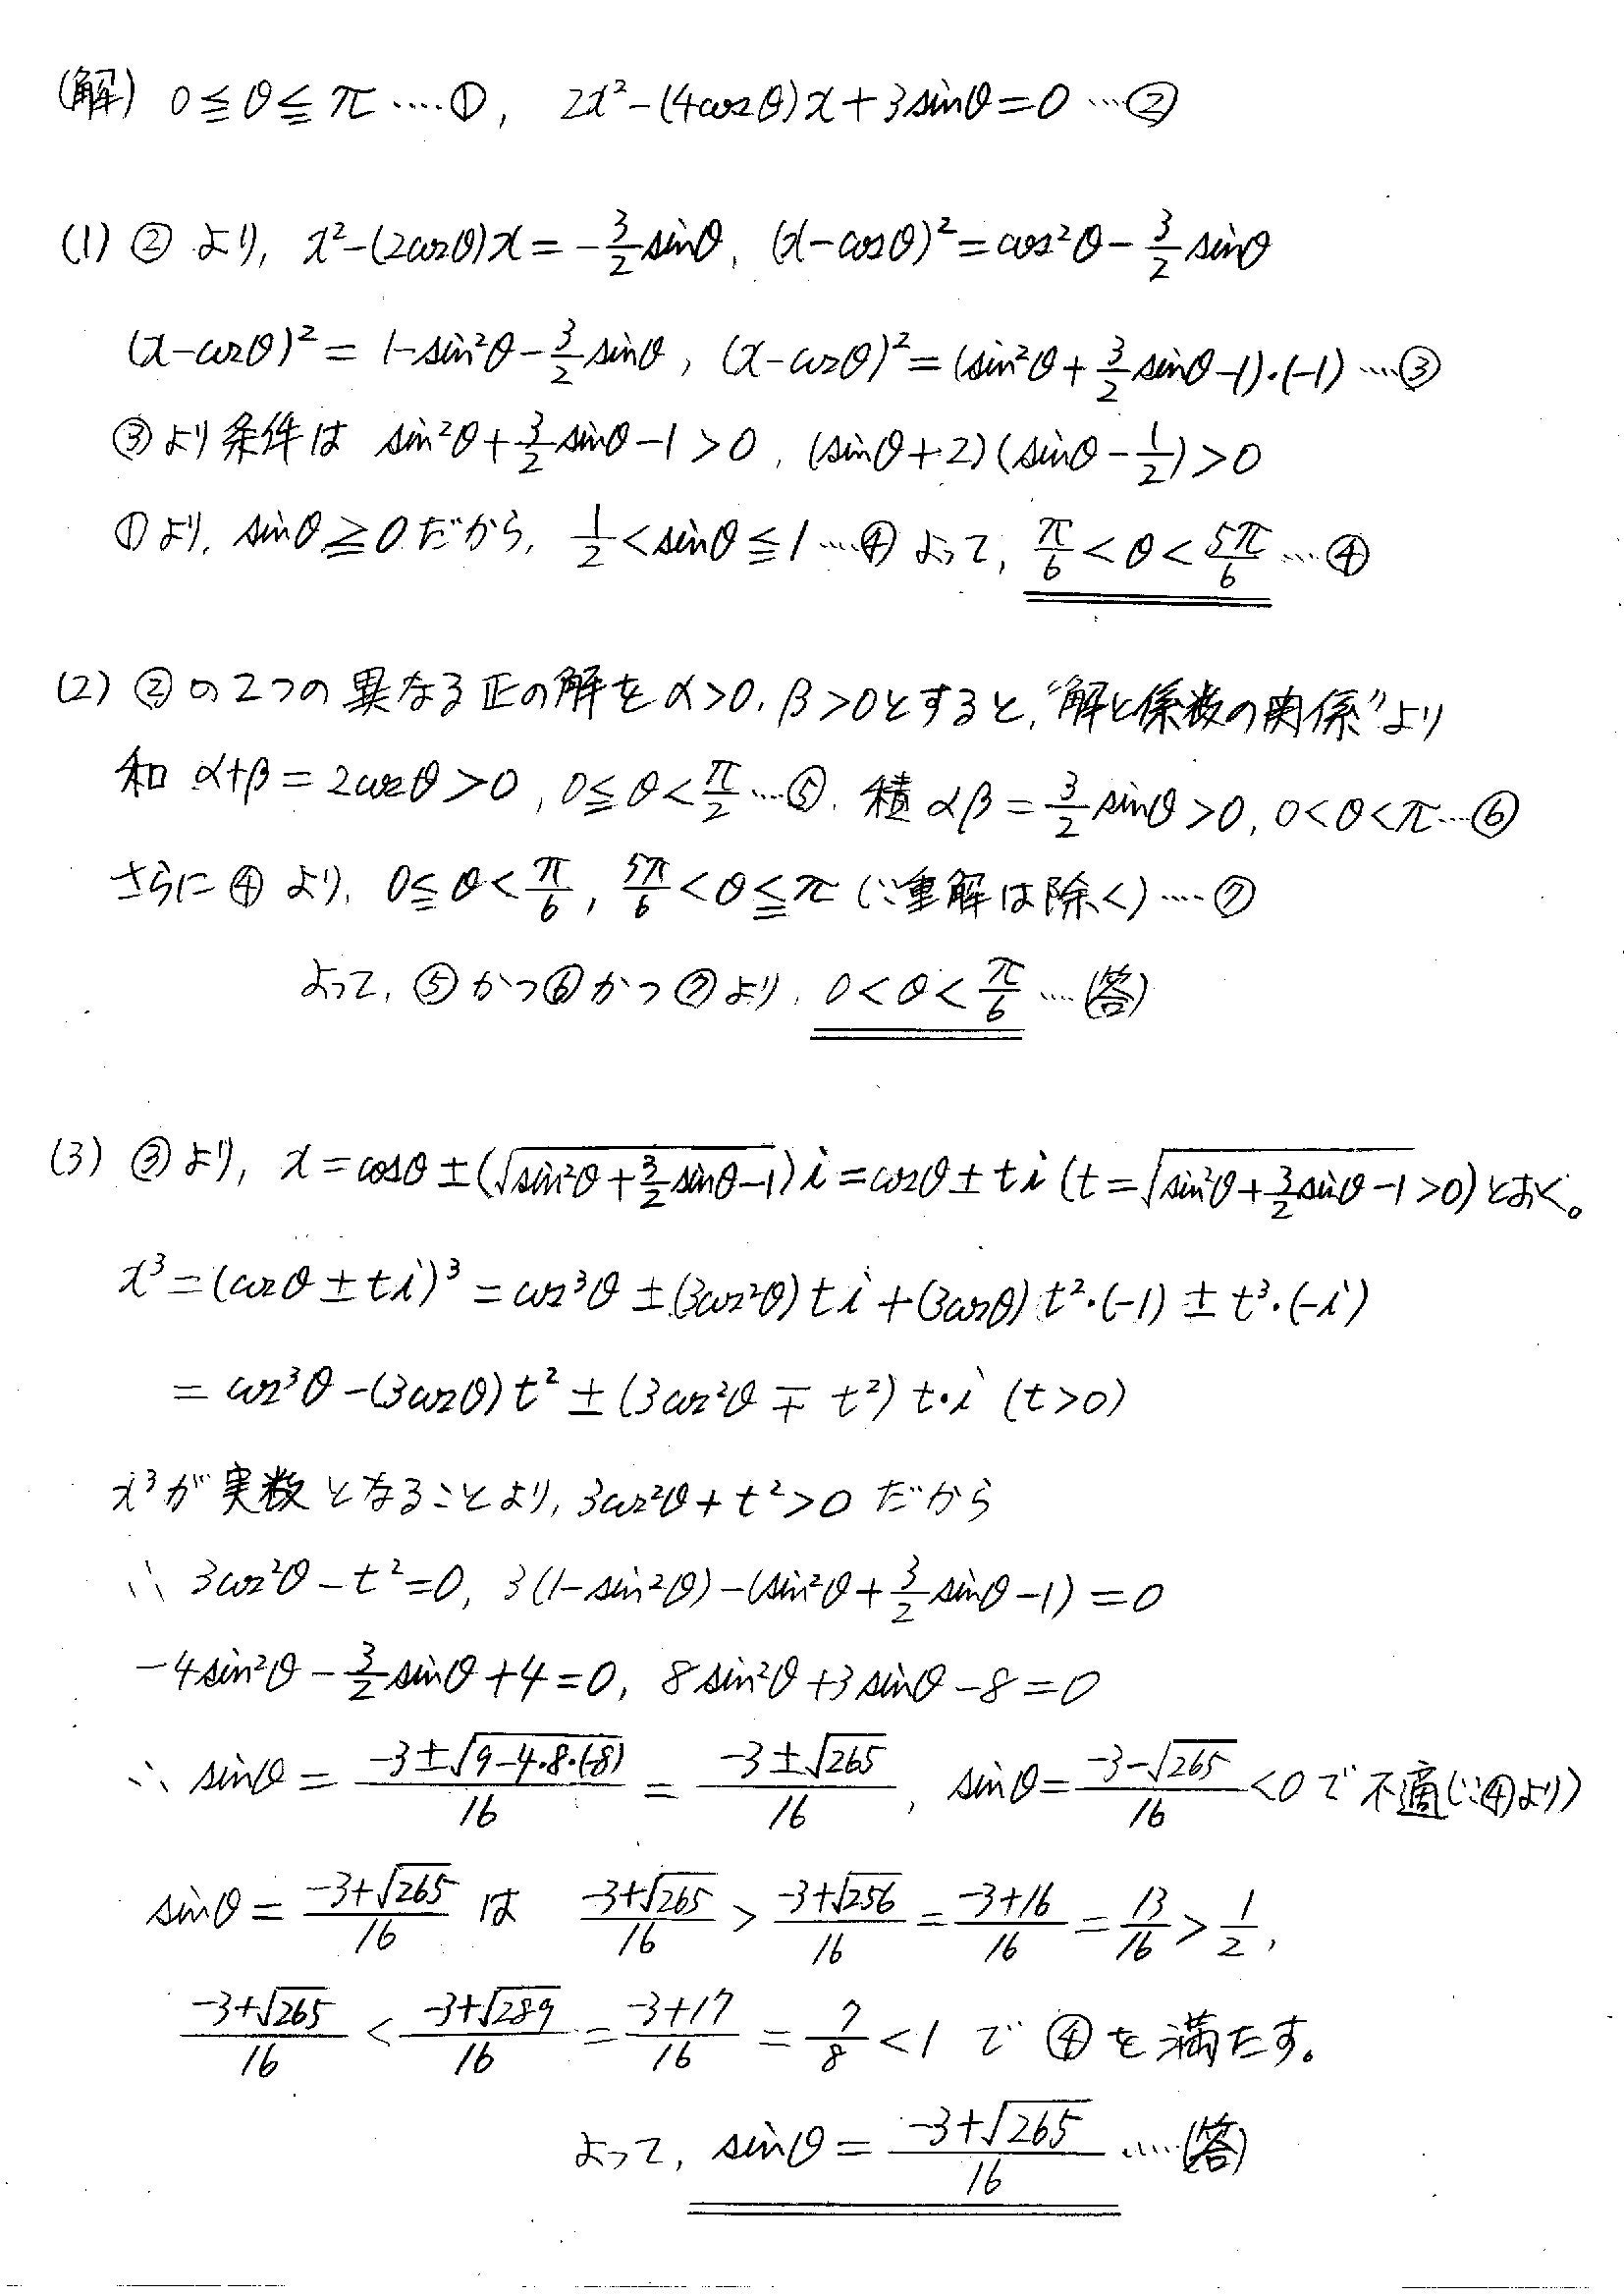 (解) 0≦θ≦π ‥‥①, 2x²-(4cosθ)x+3sinθ=0 ‥‥②
(1) ② より, x²-(2cosθ)x=-3/2 sinθ, (x-cosθ)²=cos²θ-3/2 sinθ
(x-cosθ)²=1-sin²θ-3/2 sinθ, (x-cosθ)²=(sin²θ+3/2 sinθ-1)・(-1) ‥‥③
③より条件は sin²θ+3/2 sinθ-1>0, (sinθ+2)(sinθ-1/2)>0
①より, sinθ≧0だから, 1/2<sinθ≦1 ‥‥④ よって, π/6<θ<5π/6 ‥‥④
(2) ②の2つの異なる正の解をα>0, β>0とすると,“解と係数の関係”より
和 α+β=2cosθ>0, 0≦θ<π/2 ‥‥⑤, 積 αβ=3/2 sinθ>0, 0<θ<π ‥‥⑥
さらに④より, 0≦θ<π/6, 5π/6<θ≦π (∵重解は除く) ‥‥⑦
よって, ⑤かつ⑥かつ⑦より, 0<θ<π/6 ‥‥(答)
(3) ③より, x=cosθ±(√(sin²θ+3/2 sinθ-1))i=cosθ±ti (t=√(sin²θ+3/2 sinθ-1)>0)とおく。
x³=(cosθ±ti)³=cos³θ±(3cos²θ)ti+(3cosθ)t²・(-1)±t³・(-i)
=cos³θ-(3cosθ)t²±(3cos²θ∓t²)t・i (t>0)
x³が実数となることより, 3cos²θ+t²>0 だから
∴ 3cos²θ-t²=0, 3(1-sin²θ)-(sin²θ+3/2 sinθ-1)=0
-4sin²θ-3/2 sinθ+4=0, 8sin²θ+3sinθ-8=0
∴ sinθ=(-3±√(9-4・8・(-8)))/16=(-3±√265)/16, sinθ=(-3-√265)/16<0で不適(∵④より)
sinθ=(-3+√265)/16 は (-3+√265)/16>(-3+√256)/16=(-3+16)/16=13/16>1/2,
(-3+√265)/16<(-3+√289)/16=(-3+17)/16=7/8<1 で ④を満たす。
よって, sinθ=(-3+√265)/16 ‥‥(答)